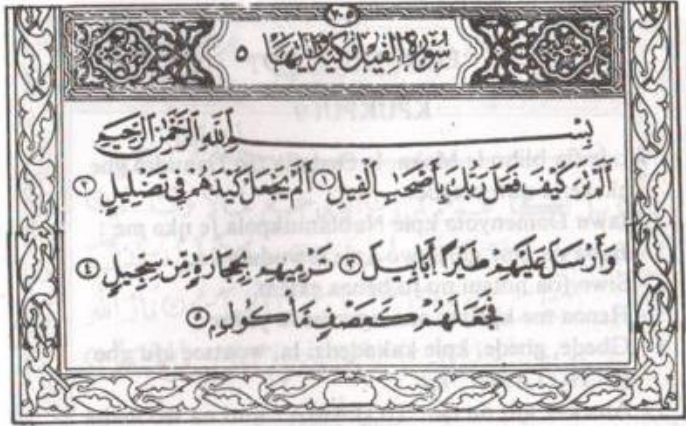 ١٠٥
سُورَةُ الْفِيلِ مَكِّيَّةٌ وَآيَاتُهَا ٥
بِسْمِ اللَّهِ الرَّحْمَٰنِ الرَّحِيمِ
أَلَمْ تَرَ كَيْفَ فَعَلَ رَبُّكَ بِأَصْحَابِ الْفِيلِ ١ أَلَمْ يَجْعَلْ كَيْدَهُمْ فِي تَضْلِيلٍ ٢
وَأَرْسَلَ عَلَيْهِمْ طَيْرًا أَبَابِيلَ ٣ تَرْمِيهِم بِحِجَارَةٍ مِّن سِجِّيلٍ ٤
فَجَعَلَهُمْ كَعَصْفٍ مَّأْكُولٍ ٥